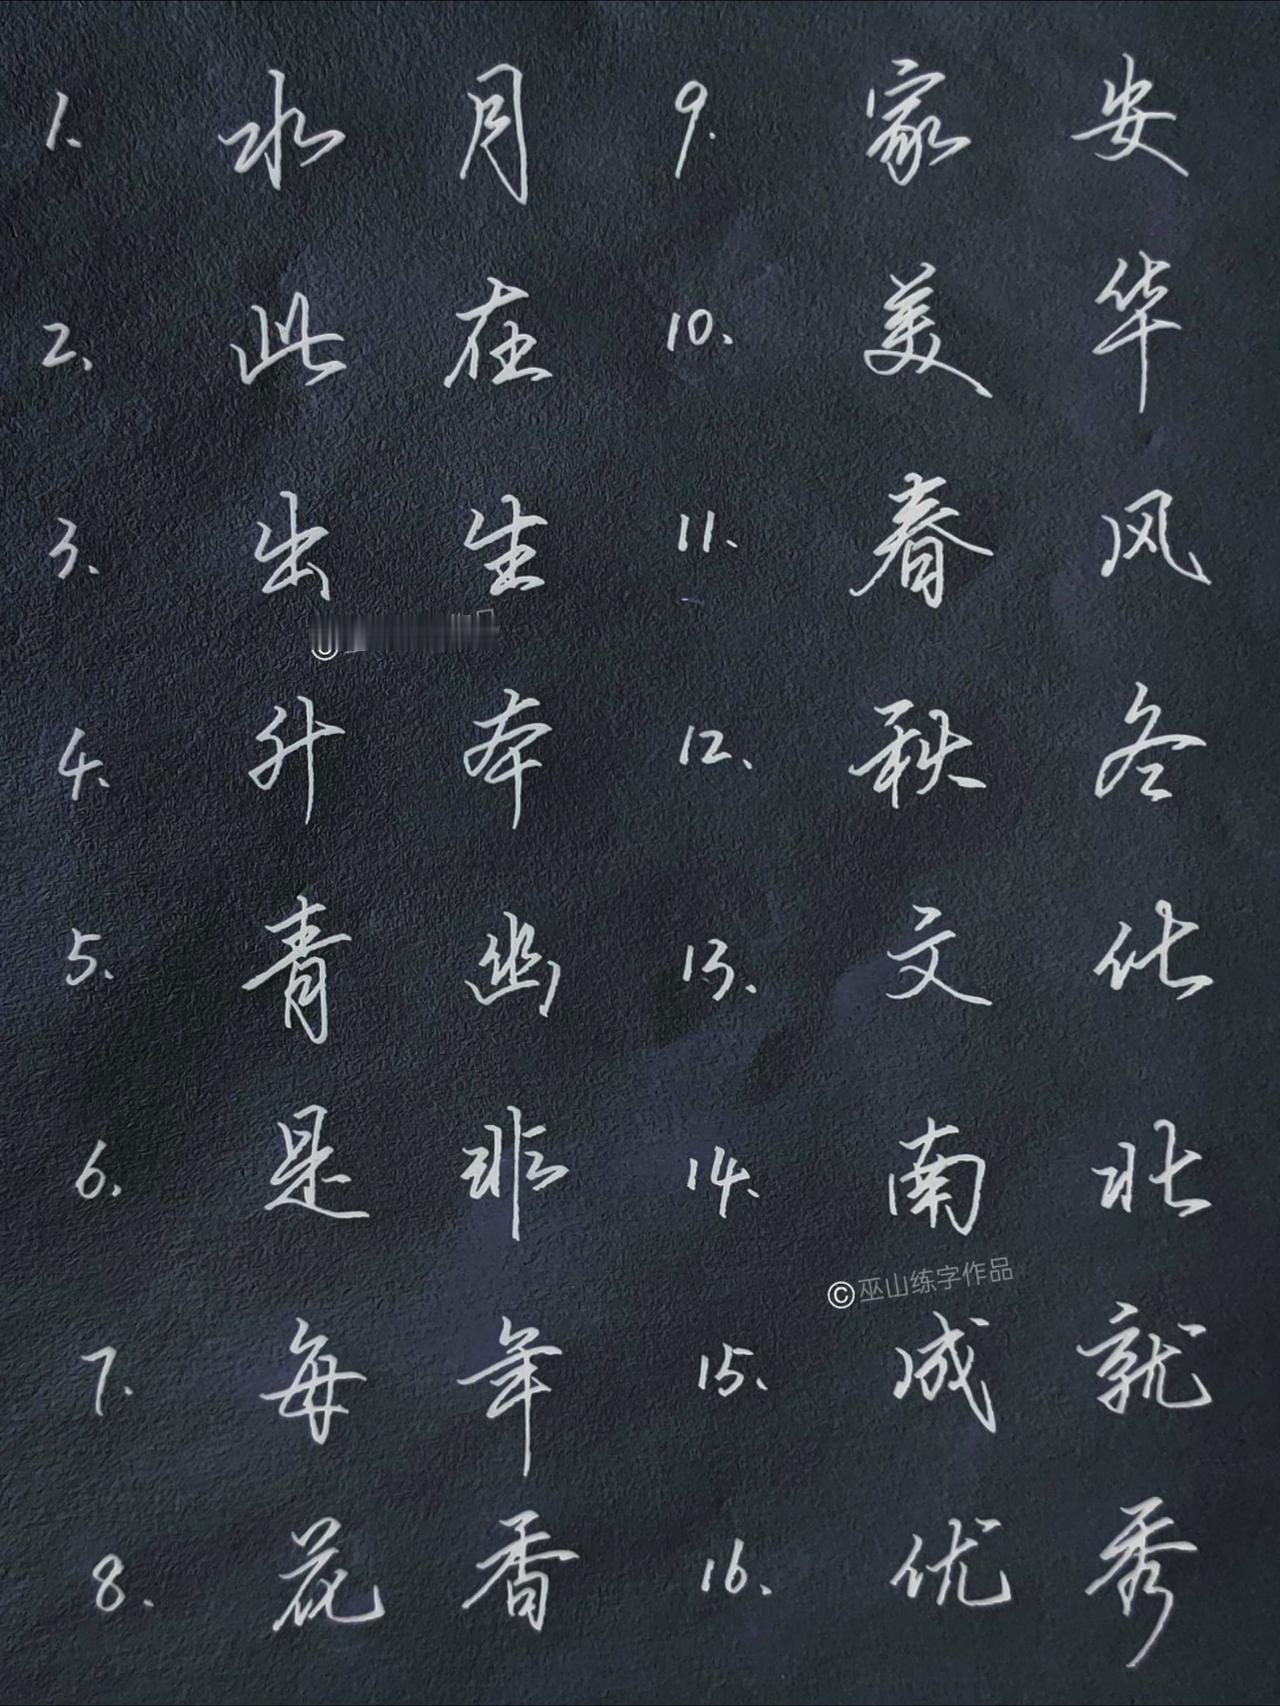 1. 水月
2. 此在
3. 出生
4. 升本
5. 青幽
6. 是非
7. 每年
8. 花香
9. 家安
10. 美华
11. 春风
12. 秋冬
13. 文化
14. 南北
©巫山练字作品
15. 成就
16. 优秀